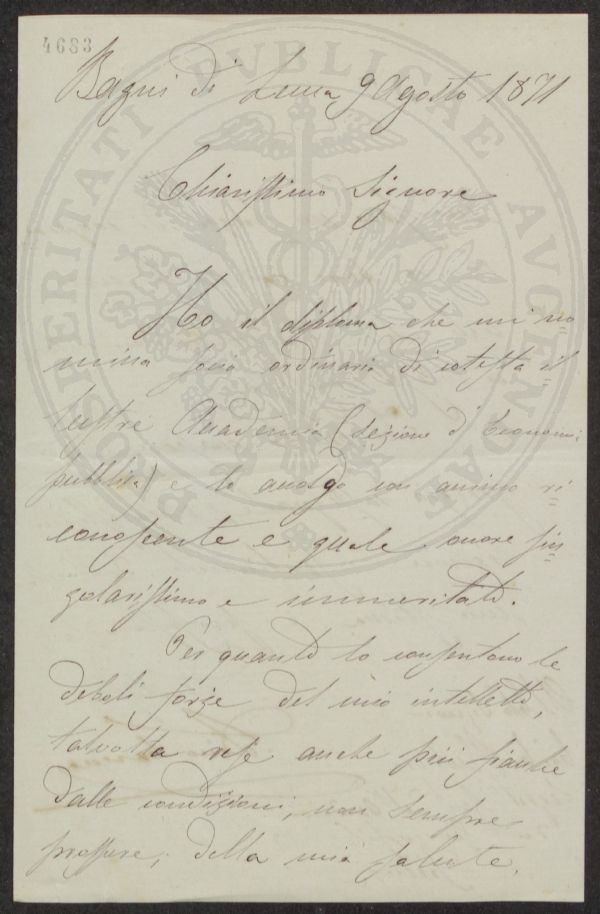 4683
Bagni di Lucca 9 Agosto 1871
Chiarissimo Signore
Ho il diploma che mi no
mina socio ordinario di cotesta il
lustre Accademia (Sezione d'Economia
pubblica) e lo accolgo con animo ri
conoscente e quale onore sin
golarissimo e immeritato.
Per quanto lo consentono le
deboli forze del mio intelletto,
talvolta rese anche più fiacche
dalle condizioni, non sempre
prospere, della mia salute,
PROSPERITATI PUBLICAE AUGENDAE